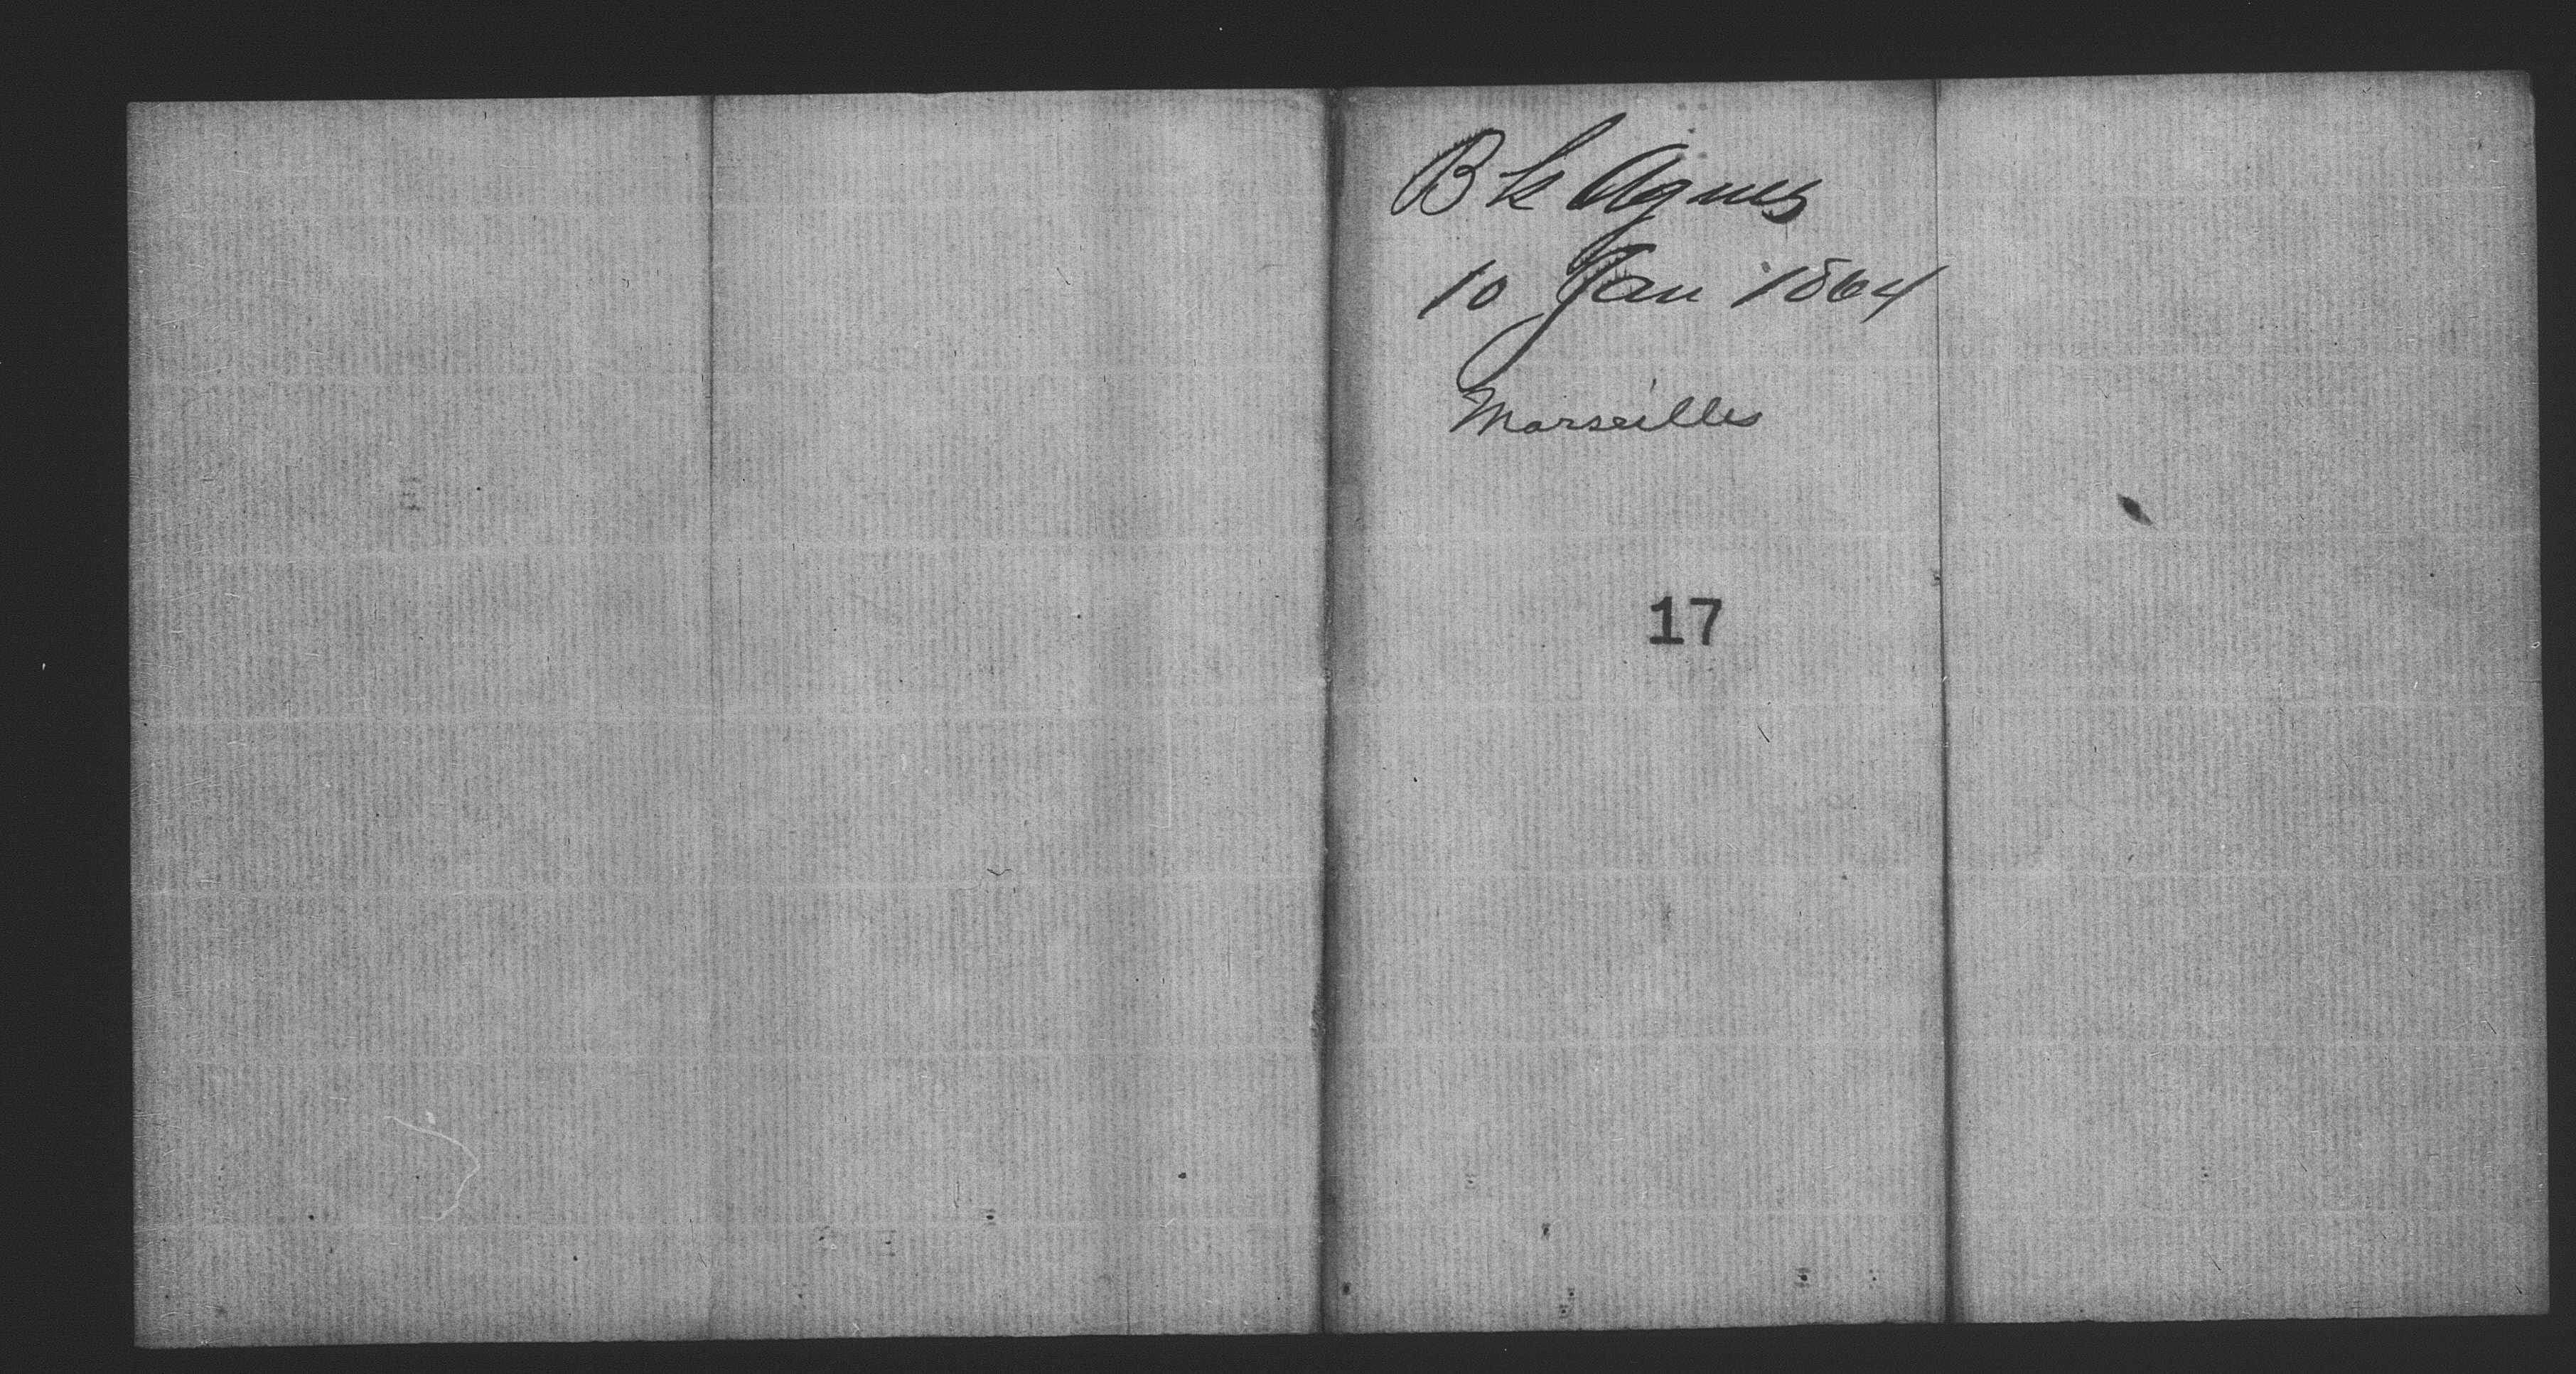 Bk Agnes
10 Jan 1864
Marseilles
17